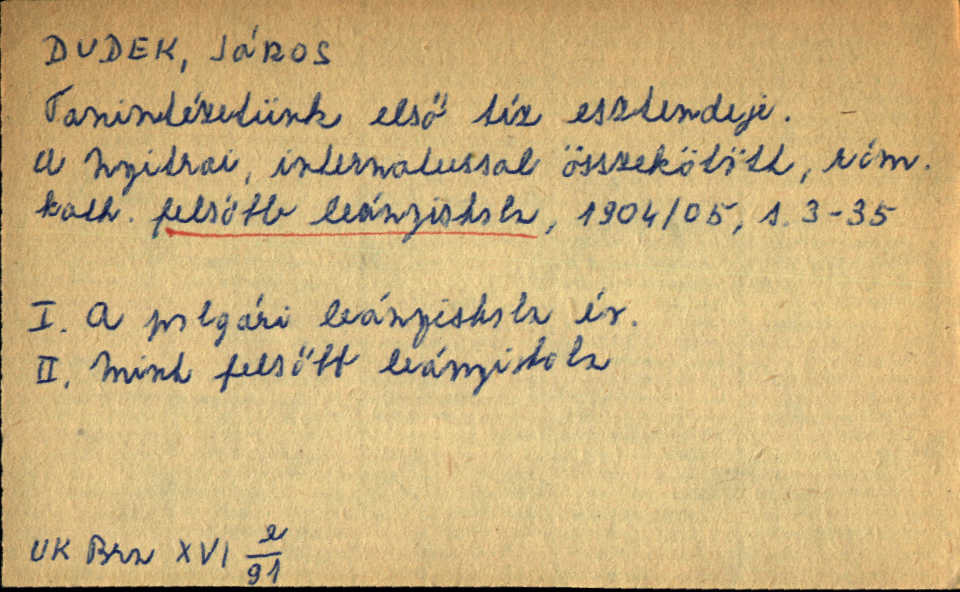 DUDEK, JÁROS
Tanintézetünk első tíz esztendeje.
A Nyitrai, internatussal összekötött, róm.
kath. felsőbb leányiskola, 1904/05, s. 3-35
I. A polgári leányiskola év.
II. Mint felsőbb leányiskola
UK Brn XVI 2/91